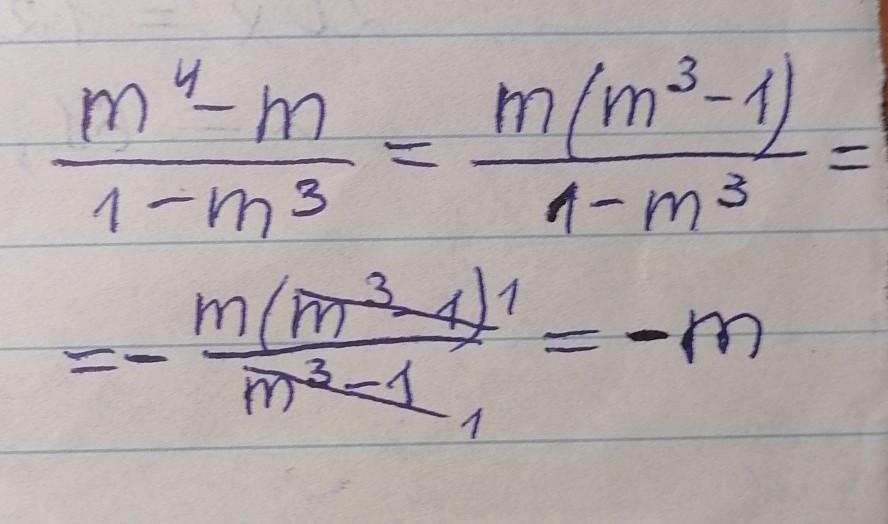 m⁴ - m / 1 - m³ = m(m³ - 1) / 1 - m³ =
= - m(m³ - 1) 1 / m³ - 1 1 = - m